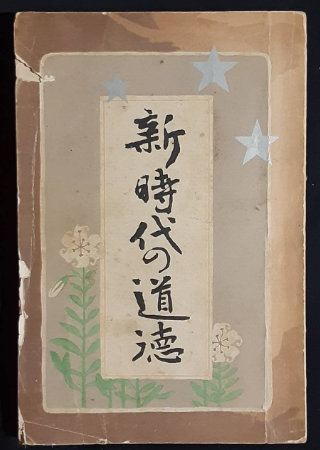 新時代の道徳